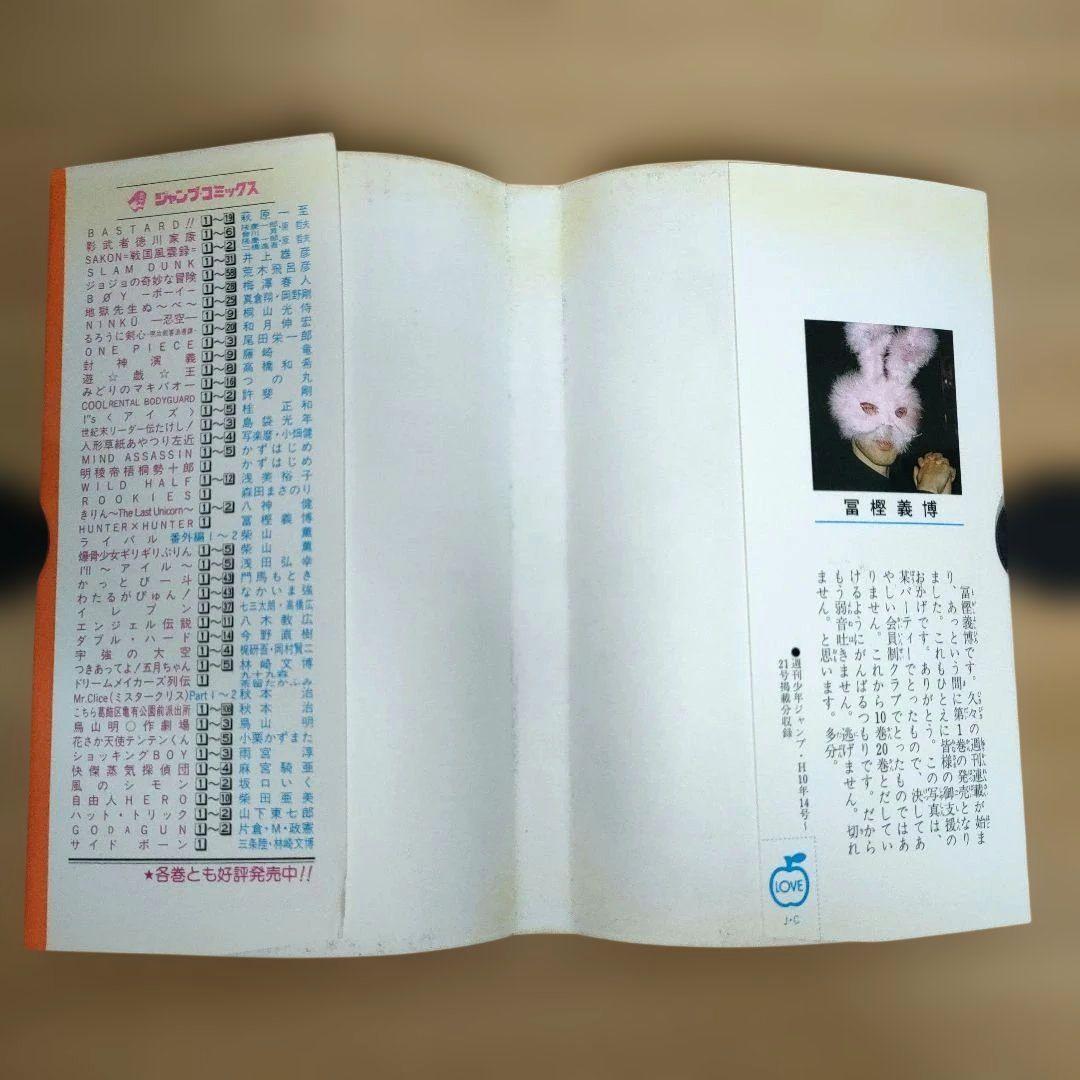 ジャンプ・コミックス
BASTARD!! 1〜19 萩原一至
影武者徳川家康 1〜6 隆慶一郎・原哲夫 會川昇
SAKON=戦国風雲録= 1〜2 隆慶一郎・原哲夫 二橋進吾
SLAM DUNK 1〜31 井上雄彦
ジョジョの奇妙な冒険 荒木飛呂彦
BØY ―ボーイ― 梅澤春人
地獄先生ぬ〜べ〜 1〜25 真倉翔・岡野剛
NINKŪ ―忍空― 1〜9 桐山光侍
るろうに剣心 1〜20 和月伸宏
ONE PIECE 1〜3 尾田栄一郎
封神演義 1〜9 藤崎竜
遊☆戯☆王 高橋和希
みどりのマキバオー 1〜16 つの丸
COOL RENTAL BODYGUARD 1〜2 許斐剛
I"s〈アイズ〉 1〜5 桂正和
世紀末リーダー伝たけし! 1〜3 島袋光年
人形草紙あやつり左近 1〜4 写楽麿・小畑健
MIND ASSASSIN 1〜5 かずはじめ
明稜帝梧桐勢十郎 1 かずはじめ
WILD HALF 1〜12 浅美裕子
ROOKIES 1 森田まさのり
きりん〜The Last Unicorn〜 1〜2 八神健
HUNTER×HUNTER 1 冨樫義博
ライバル 番外編1〜2 柴山薫
爆骨少女ギリギリぷりん 1〜5 柴山薫
I'll〜アイル〜 1〜5 浅田弘幸
かっとび一斗 門馬もとき
わたるがぴゅん! なかいま強
イレブン 七三太朗・高橋広
エンジェル伝説 1〜11 八木教広
ダブル・ハード 1〜14 今野直樹
宇強の大空 1〜4 梶研吾・岡村賢二
つきあってよ!五月ちゃん 1〜5 林崎文博
ドリームメイカーズ列伝 1 九十九森 茶留たかふみ
Mr.Clice(ミスタークリス) Part1〜2 秋本治
こちら葛飾区亀有公園前派出所 秋本治
鳥山明○作劇場 1〜3 鳥山明
花さか天使テンテンくん 1〜5 小栗かずまた
ショッキングBOY 1〜3 雨宮淳
快傑蒸気探偵団 1〜4 麻宮騎亜
風のシモン 1〜2 坂口いく
自由人HERO 1〜10 柴田亜美
ハット・トリック 1〜2 山下東七郎
GODAGUN 1〜2 片倉・M・政憲
サイドボーン 1 三条陸・林崎文博
★各巻とも好評発売中!!
冨樫義博
冨樫義博です。久々の週刊連載が始ま
り、あっという間に第1巻の発売となり
ました。これもひとえに皆様の御支援の
おかげです。ありがとう。この写真は、
某パーティーでとったもので、決してあ
やしい会員制クラブでとったものではあ
りません。これから10巻20巻とだしてい
けるようにがんばるつもりです。だから
もう弱音吐きません。逃げません。切れ
ません。と思います。多分。
●週刊少年ジャンプ・H10年14号〜
21号掲載分収録
LOVE
J・C